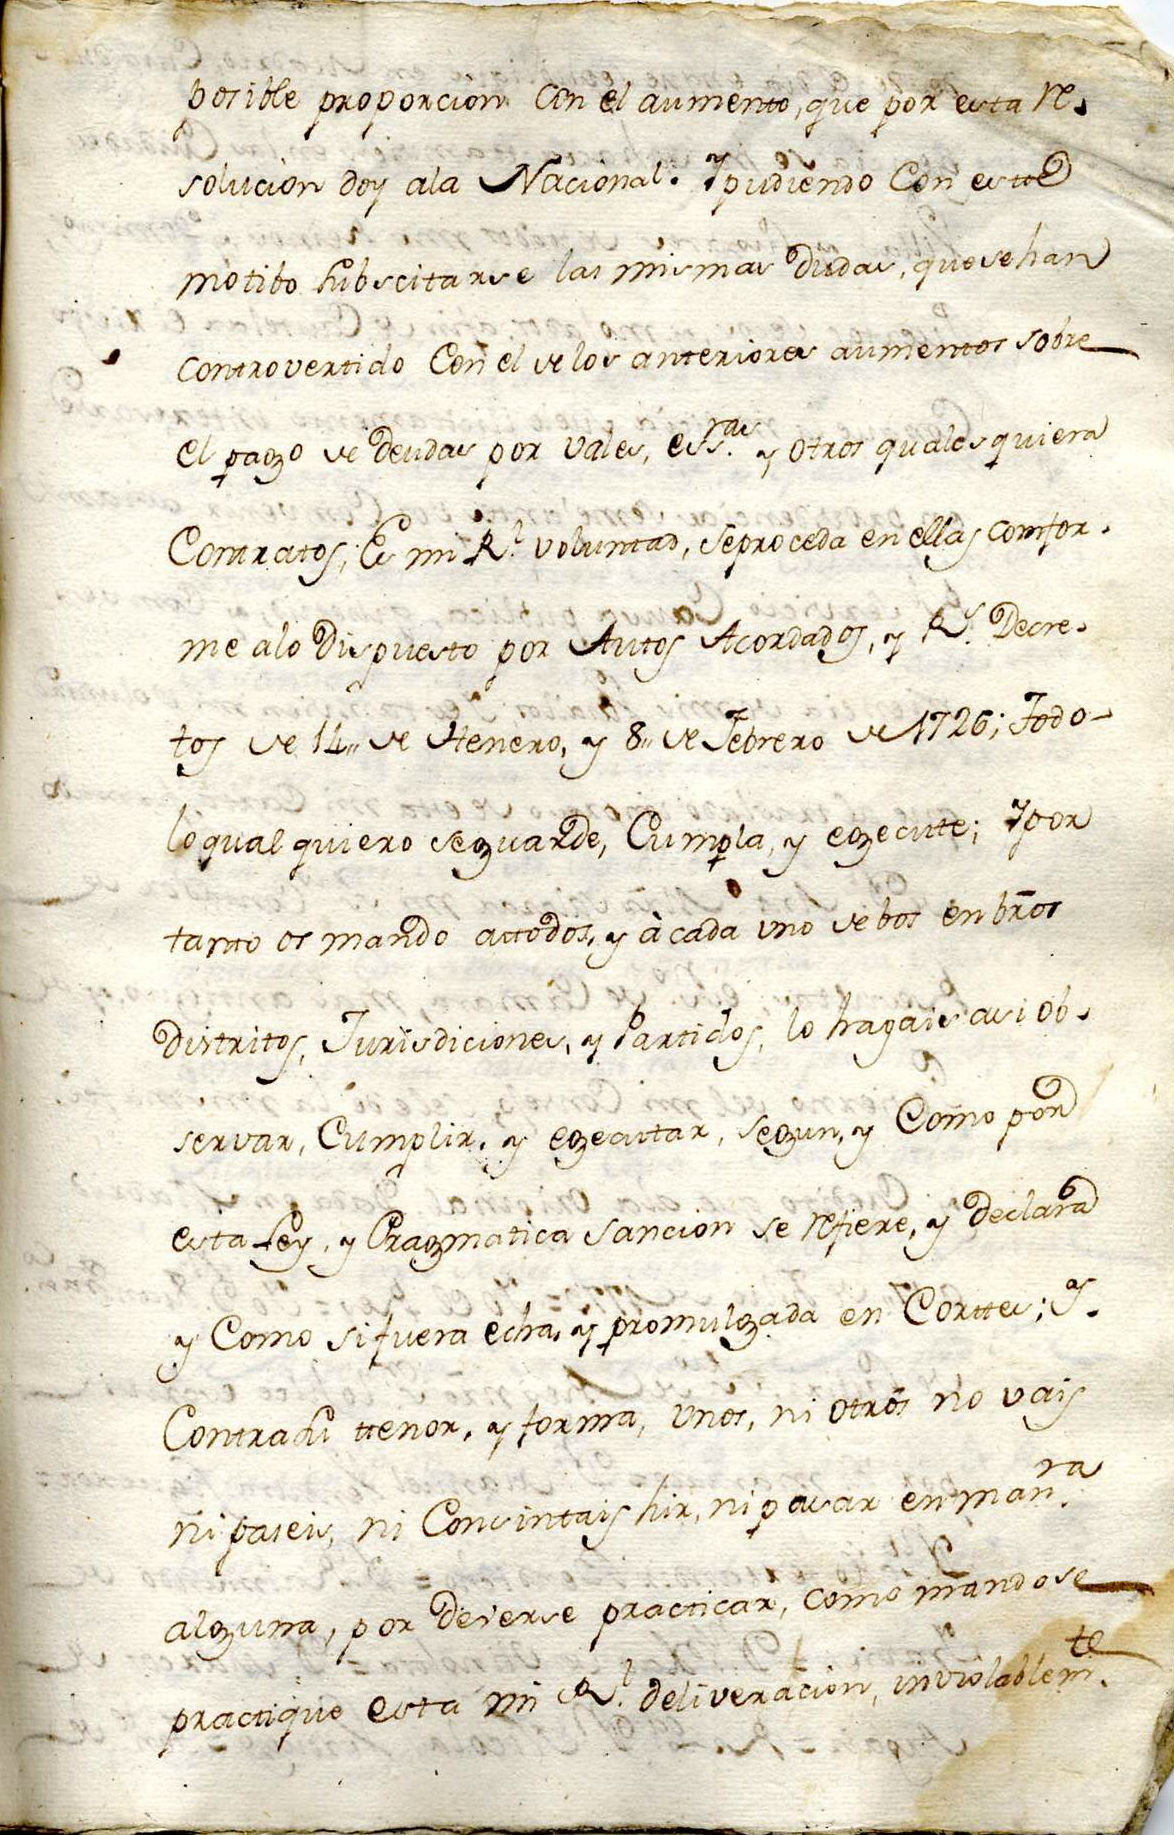 posible proporcion con el aumento, que por esta re-
solucion doy ala Nacional. Y pudiendo con este
motibo subscitarse las mismas dudas, que se han
controvertido con el de los anteriores aumentos sobre
el pago de deudas por vales, ess.ras y otros qualesquiera
Contratos; Es mi R.l voluntad, se proceda en ellas comfor-
me alo Dispuesto por Autos Acordados, y R.s Decre-
tos de 14 de Henero, y 8 de Febrero de 1726; Todo
lo qual quiero se guarde, Cumpla, y egecute; Y por
tanto os mando attodos, y à cada uno de bos en bros
Distritos, Jurisdiciones, y Partidos, lo hagais asi ob-
servar, Cumplir, y egecutar, segun, y Como por
esta Ley, y Pragmatica sancion se refiere, y declara
y Como si fuera echa, y promulgada en Corttes; Y
Contra su ttenor, y forma, unos, ni otros no vais
ni paseis, ni Consintais hir, ni pasar en man.ra
alguna, por deverse practicar, como mando se
practique esta mi R.l deliveracion, inviolablem.te